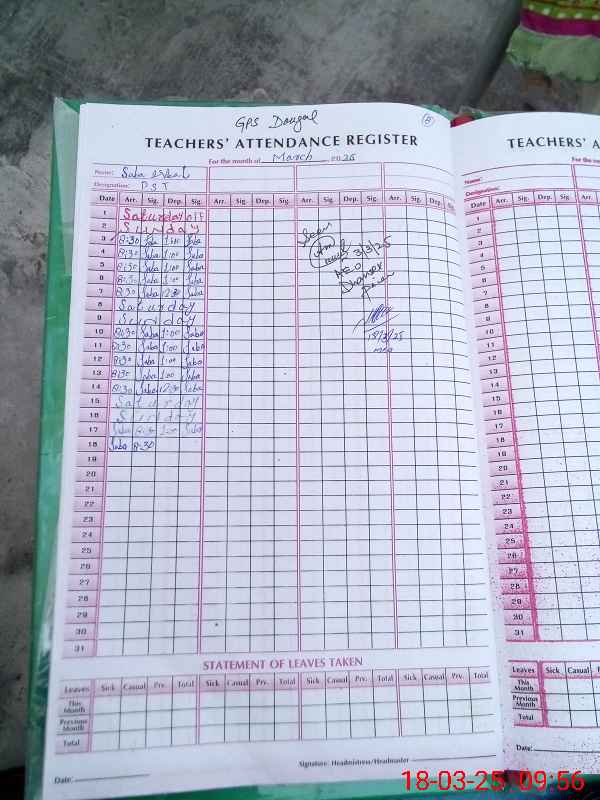 GPS Dangal
TEACHERS' ATTENDANCE REGISTER
For the month of March 2025
Name: Saba
Designation: PST
Date Arr. Sig. Dep. Sig. Arr. Sig. Dep. Sig. Arr. Sig. Dep. Sig. Arr. Sig. Dep. Sig.
1 Saturday off
2 Sunday
3 8:30 Saba 1:00 Saba
4 8:30 Saba 1:00 Saba
5 8:30 Saba 1:00 Saba
6 8:30 Saba 1:00 Saba
7 8:30 Saba 12:30 Saba
8 Saturday
9 Sunday
10 8:30 Saba 1:00 Saba
11 8:30 Saba 1:00 Saba
12 8:30 Saba 1:00 Saba
13 8:30 Saba 1:00 Saba
14 8:30 Saba 12:30 Saba
15 Saturday
16 Sunday
17 Saba 8:30 1:00 Saba
18 Saba 8:30
19
20
21
22
23
24
25
26
27
28
29
30
31
Seen
3/3/25
AEO
18/3/25
STATEMENT OF LEAVES TAKEN
Leaves Sick Casual Prv. Total Sick Casual Prv. Total Sick Casual Prv. Total Sick Casual Prv. Total
This Month
Previous Month
Total
Signature: Headmistress/Headmaster
Date:
TEACHERS' A
For the
Name:
Designation:
Date Arr. Sig. Dep. Sig. Arr.
1
2
3
4
5
6
7
8
9
10
11
12
13
14
15
16
17
18
19
20
21
22
23
24
25
26
27
28
29
30
31
Leaves Sick Casual Prv.
This Month
Previous Month
Total
Date:
18-03-25 09:56